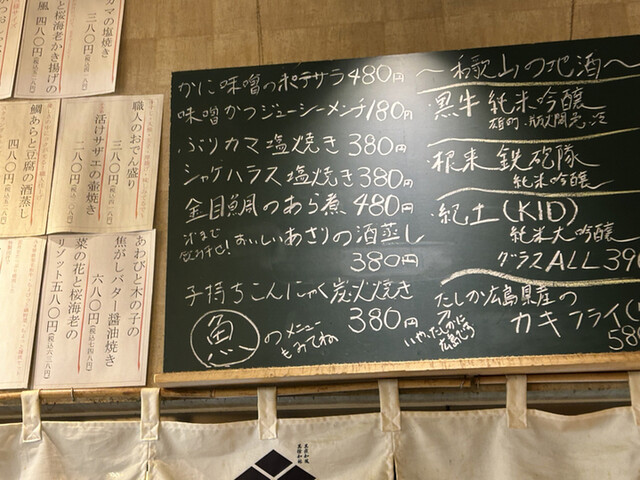 かに味噌のポテサラ480円
味噌かつジューシーメンチ180円
ぶりカマ塩焼き380円
シャケハラス塩焼き380円
金目鯛のあら煮480円
汁まで
おいしいあさりの酒蒸し
380円
子持ちこんにゃく炭火焼き
380円
魚のメニュー
もみてね
〜和歌山の地酒〜
・黒牛 純米吟醸
・根来 鉄砲隊
純米吟醸
・紀土(KID)
純米大吟醸
グラスALL390
たしか広島県産の
カキフライ(
580
いや、たしかに
広島じゃ
カマの塩焼き
三八〇円
と桜海老かき揚げの
風 四八〇円
職人のおでん盛り
三八〇円
活けサザエの壷焼き
二八〇円
鯛あらと豆腐の酒蒸し
四八〇円
あわびと木の子の
焦がしバター醤油焼き
六八〇円(税込七四八円)
菜の花と桜海老の
リゾット五八〇円(税込六三八円)